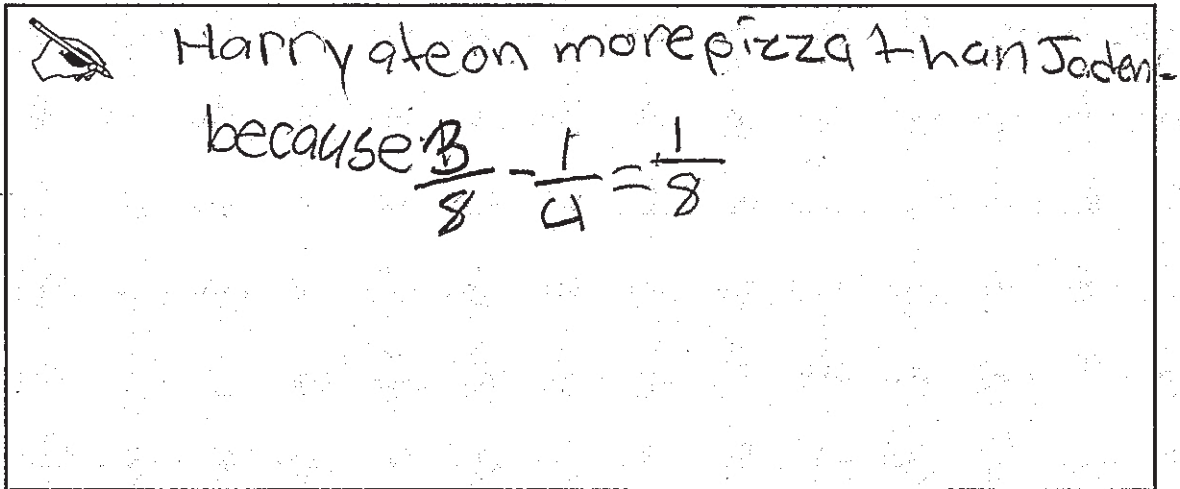 Harry ate on more pizza than Jaden
because 3/8 - 1/4 = 1/8